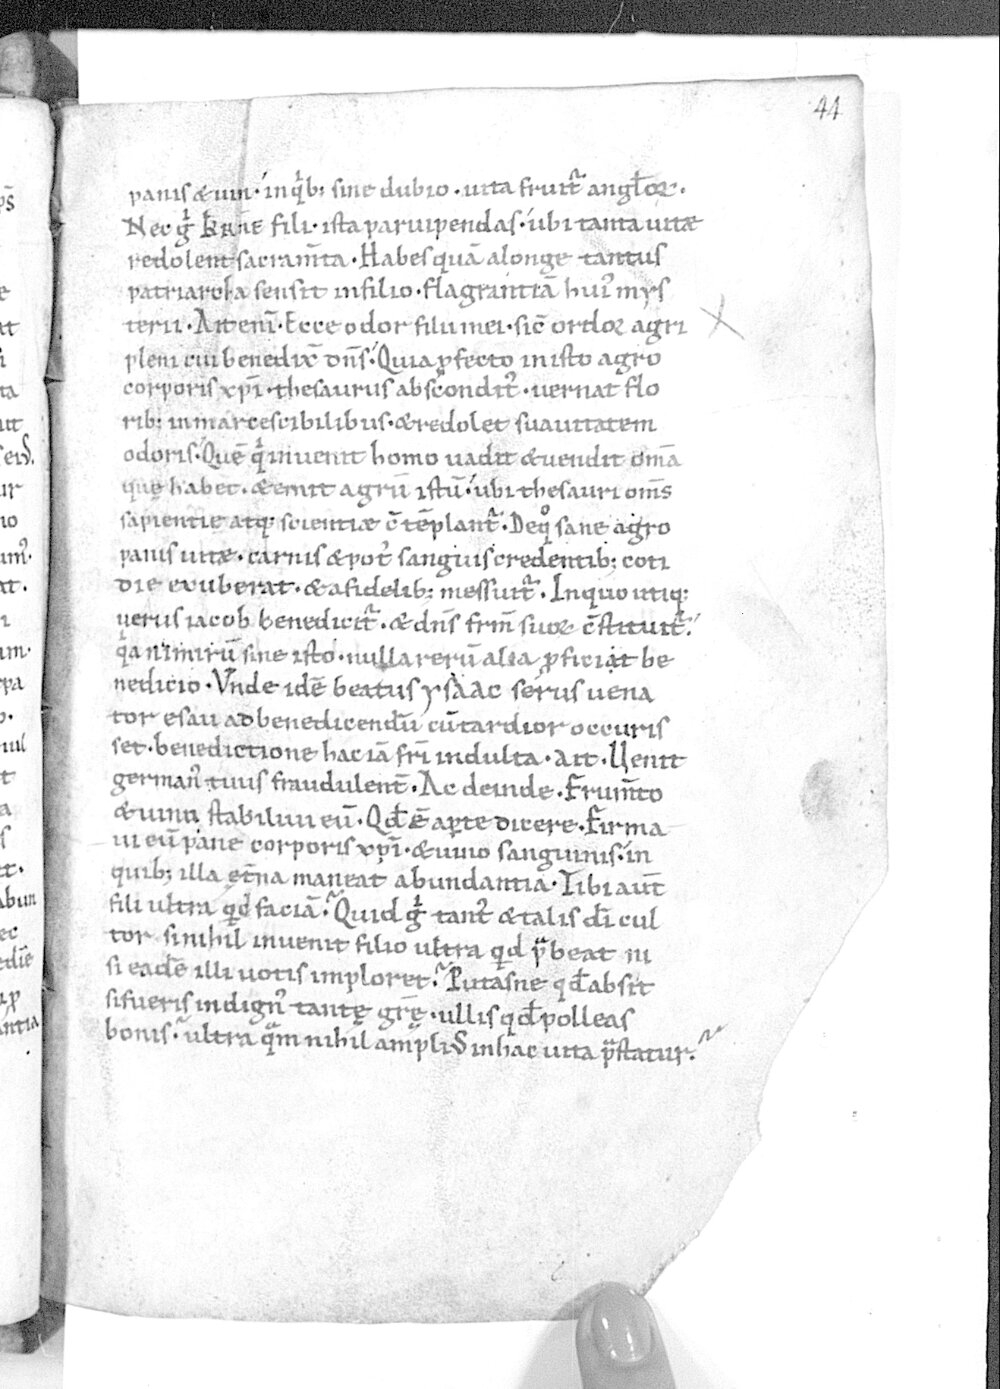 44
panis & uini · in q̇b; sine dubio · uita fruit᷑ angl̄oꝝ .
Nec g̊ k̄arıē fili · ista paruipendas · ubi tanta uitæ
redolent sacram̄ta · Habes quā a longe tantus
patriarcha sensit in filio · flagrantiā hui᷒ mys
terii · Ait enī · Ecce odor filii mei · sic̄ ordoꝛ agri
pleni cui benedix̄ dn̄s · Quia ꝓfecto in isto agro
corporis xp̄i · thesaurus absconditꝰ · uernat flo
rib; inmarcescibilibus · & redolet suauitatem
odoris · Quē q̇ inuenit homo uadit & uendit om̄a
quę habet · & emit agrū istū · ubi thesauri om̄s
sapientie atq; scientiæ c̄tēplant᷑ . De q̊ sane agro
panis uitæ · carnis & potꝰ sanguis credentib; coti
die exuberat · & a fidelib; messuit᷑ · In quo utiq;
uerus iacob benedicit᷑ · & dn̄s frm̄ suoꝝ c̄stituit᷑ .
q̇a nimirū sine isto · nulla rerū alia ꝓficiat be
nedicio · Vnde idē beatus ysaac serius uena
tor esau ad benedicendū cū tardior occuris
set · benedictione hac iā fr̄i indulta · Ait · Uenit
germanꝰ tuus fraudulent̄ · Ac deinde · Frum̄to
& uino stabiliui eū · Qđ ē aꝑte dicere · Firma
ui eū pane corporis xp̄i · & uino sanguinis · in
quib; illa et̄na maneat abundantia · Tibi aut̄
fili ultra qđ faciā · Quid g̊ tantꝰ & talis dī cul
tor si nihil inuenit filio ultra qđ p̄beat ni
si eadē illi uotis imploret · Putasne qđ absit
si fueris indignꝰ tantę gr̄ę · ullis qđ polleas
bonis · ultra q̄m nihil ampliꝰ in hac uita p̄statur .